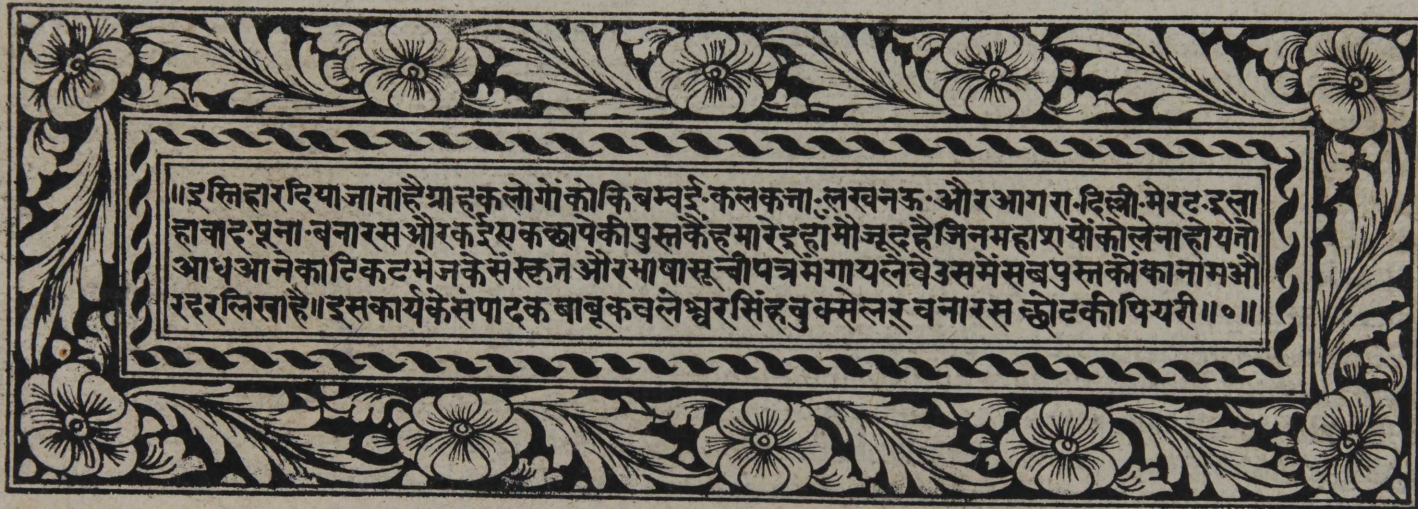 ॥इस्तिहारदियाजाताहैग्राहकलोगोंकोकिबम्बई·कलकत्ता·लखनऊ·औरआगरा·दिल्ली·मेरट·इला
हावाद·पूना·बनारसऔरकईएकछापेकीपुस्तकैंहमारेइहाँमौजूदहैजिनमहाशयोंकोलेनाहोयतौ
आधआनेकाटिकटभेजकेसंस्कृतऔरभाषासूचीपत्रमंगायलेवेउसमेंसबपुस्तकोंकानामऔ
रदरलिखाहै॥इसकार्यकेसंपादकबाबूकवलेश्वरसिंहवुक्सेलर्वनारस छोटकीपियरी॥०॥